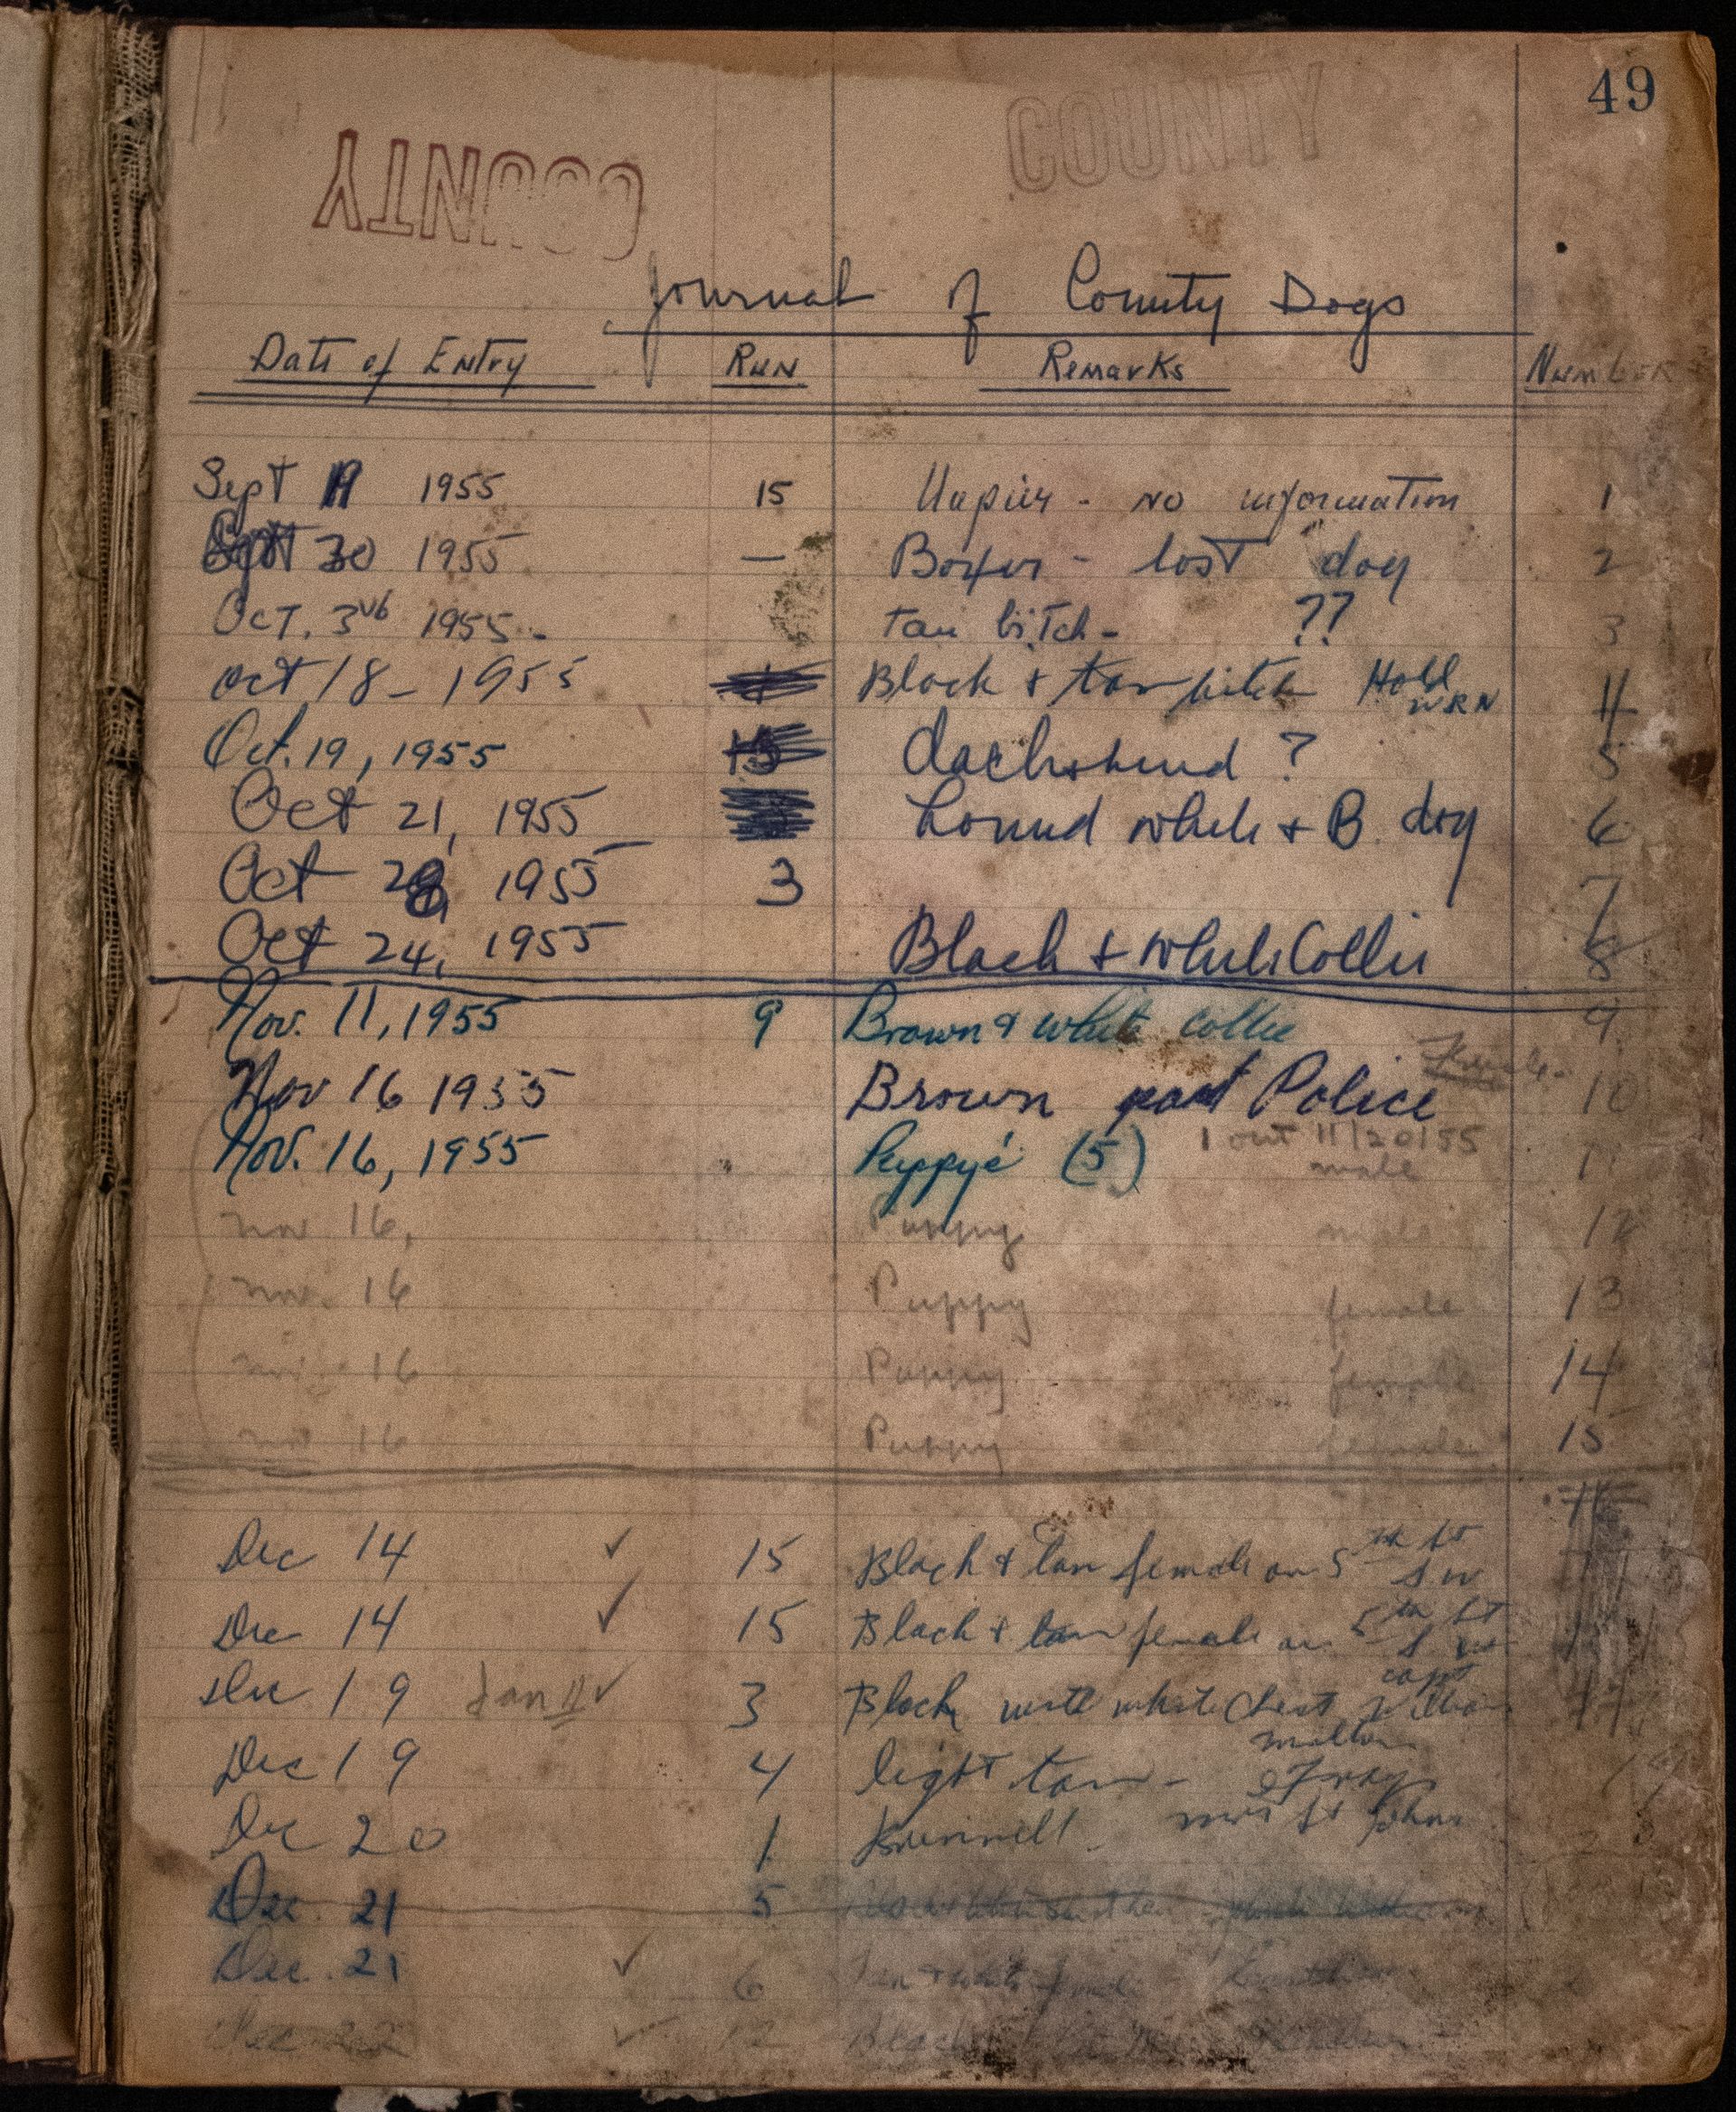 49
COUNTY
COUNTY
Journal of County Dogs
Date of Entry Run Remarks Number
Sept 19 1955 15 - no information 1
Sept 30 1955 — Boxer - lost dog 2
Oct. 3rd 1955 - tan bitch - ?? 3
Oct 18 - 1955 Black & tan bitch Hold 4
Oct. 19, 1955 15 dachshund ? 5
Oct 21, 1955 hound white & B. dog 6
Oct 28, 1955 3 7
Oct 24, 1955 Black & White Collie 8
Nov. 11, 1955 9 Brown & white collie 9
Female
Nov 16 1955 Brown part Police 10
Nov. 16, 1955 Puppy (5) 1 out 11/20/55 11
male
Nov 16, Puppy male 12
Nov. 16 Puppy female 13
Nov. 16 Puppy female 14
Nov. 16 Puppy female 15
16
Dec 14 ✓ 15 Black & tan female on 5th St
S.W
Dec 14 ✓ 15 Black & tan female on 5th St
S
Dec 19 Jan 11 ✓ 3 Black with white chest
Dec 19 4 light tan -
Dec 20 1 St Johns
Dec. 21 5
Dec. 21 ✓ 6 Tan & white female
Dec 22 ✓ 12 Black